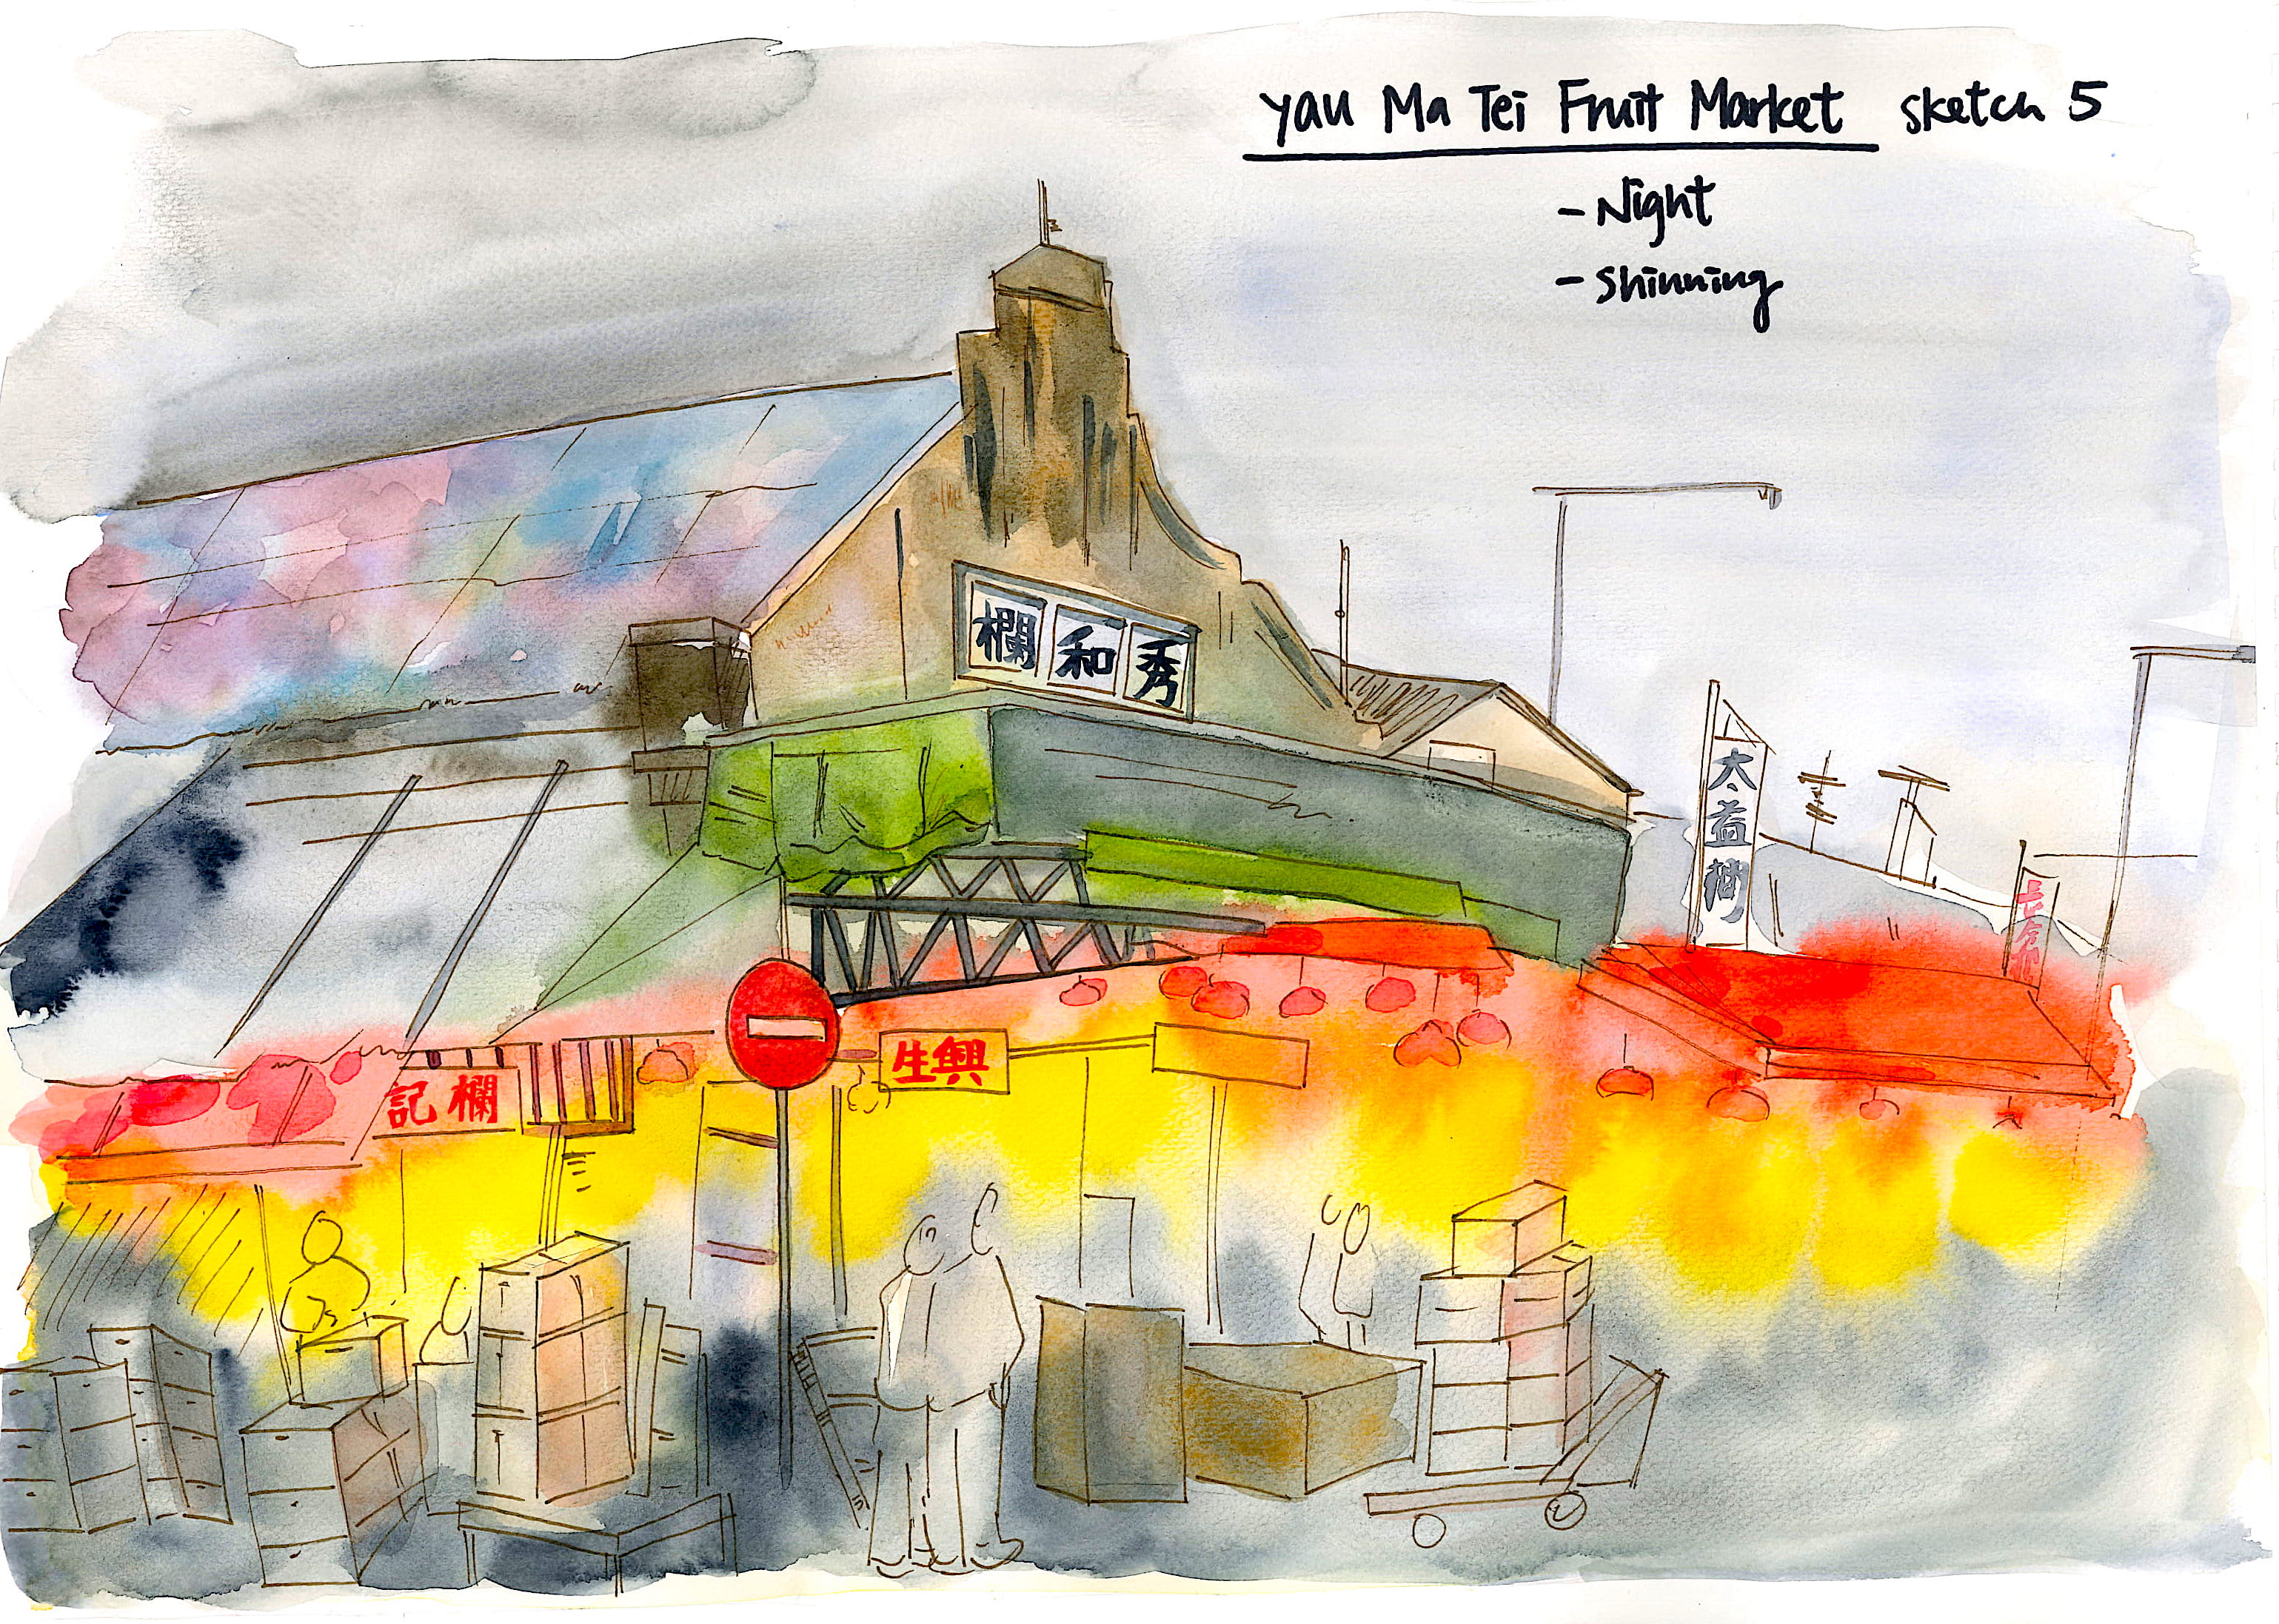 Yau Ma Tei Fruit Market sketch 5
- Night
- Shinning
欄和秀
太益欄
生興
記欄